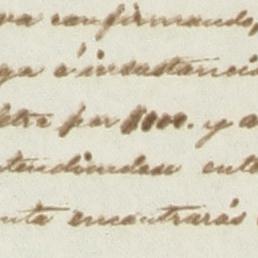 va confirmando,
ga é insustanci
letra por $1000. y a
tendiendose ent
enta encontrarás